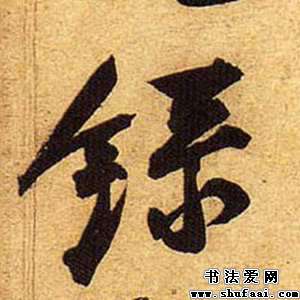 錄
书法爱网
www.shufaai.com